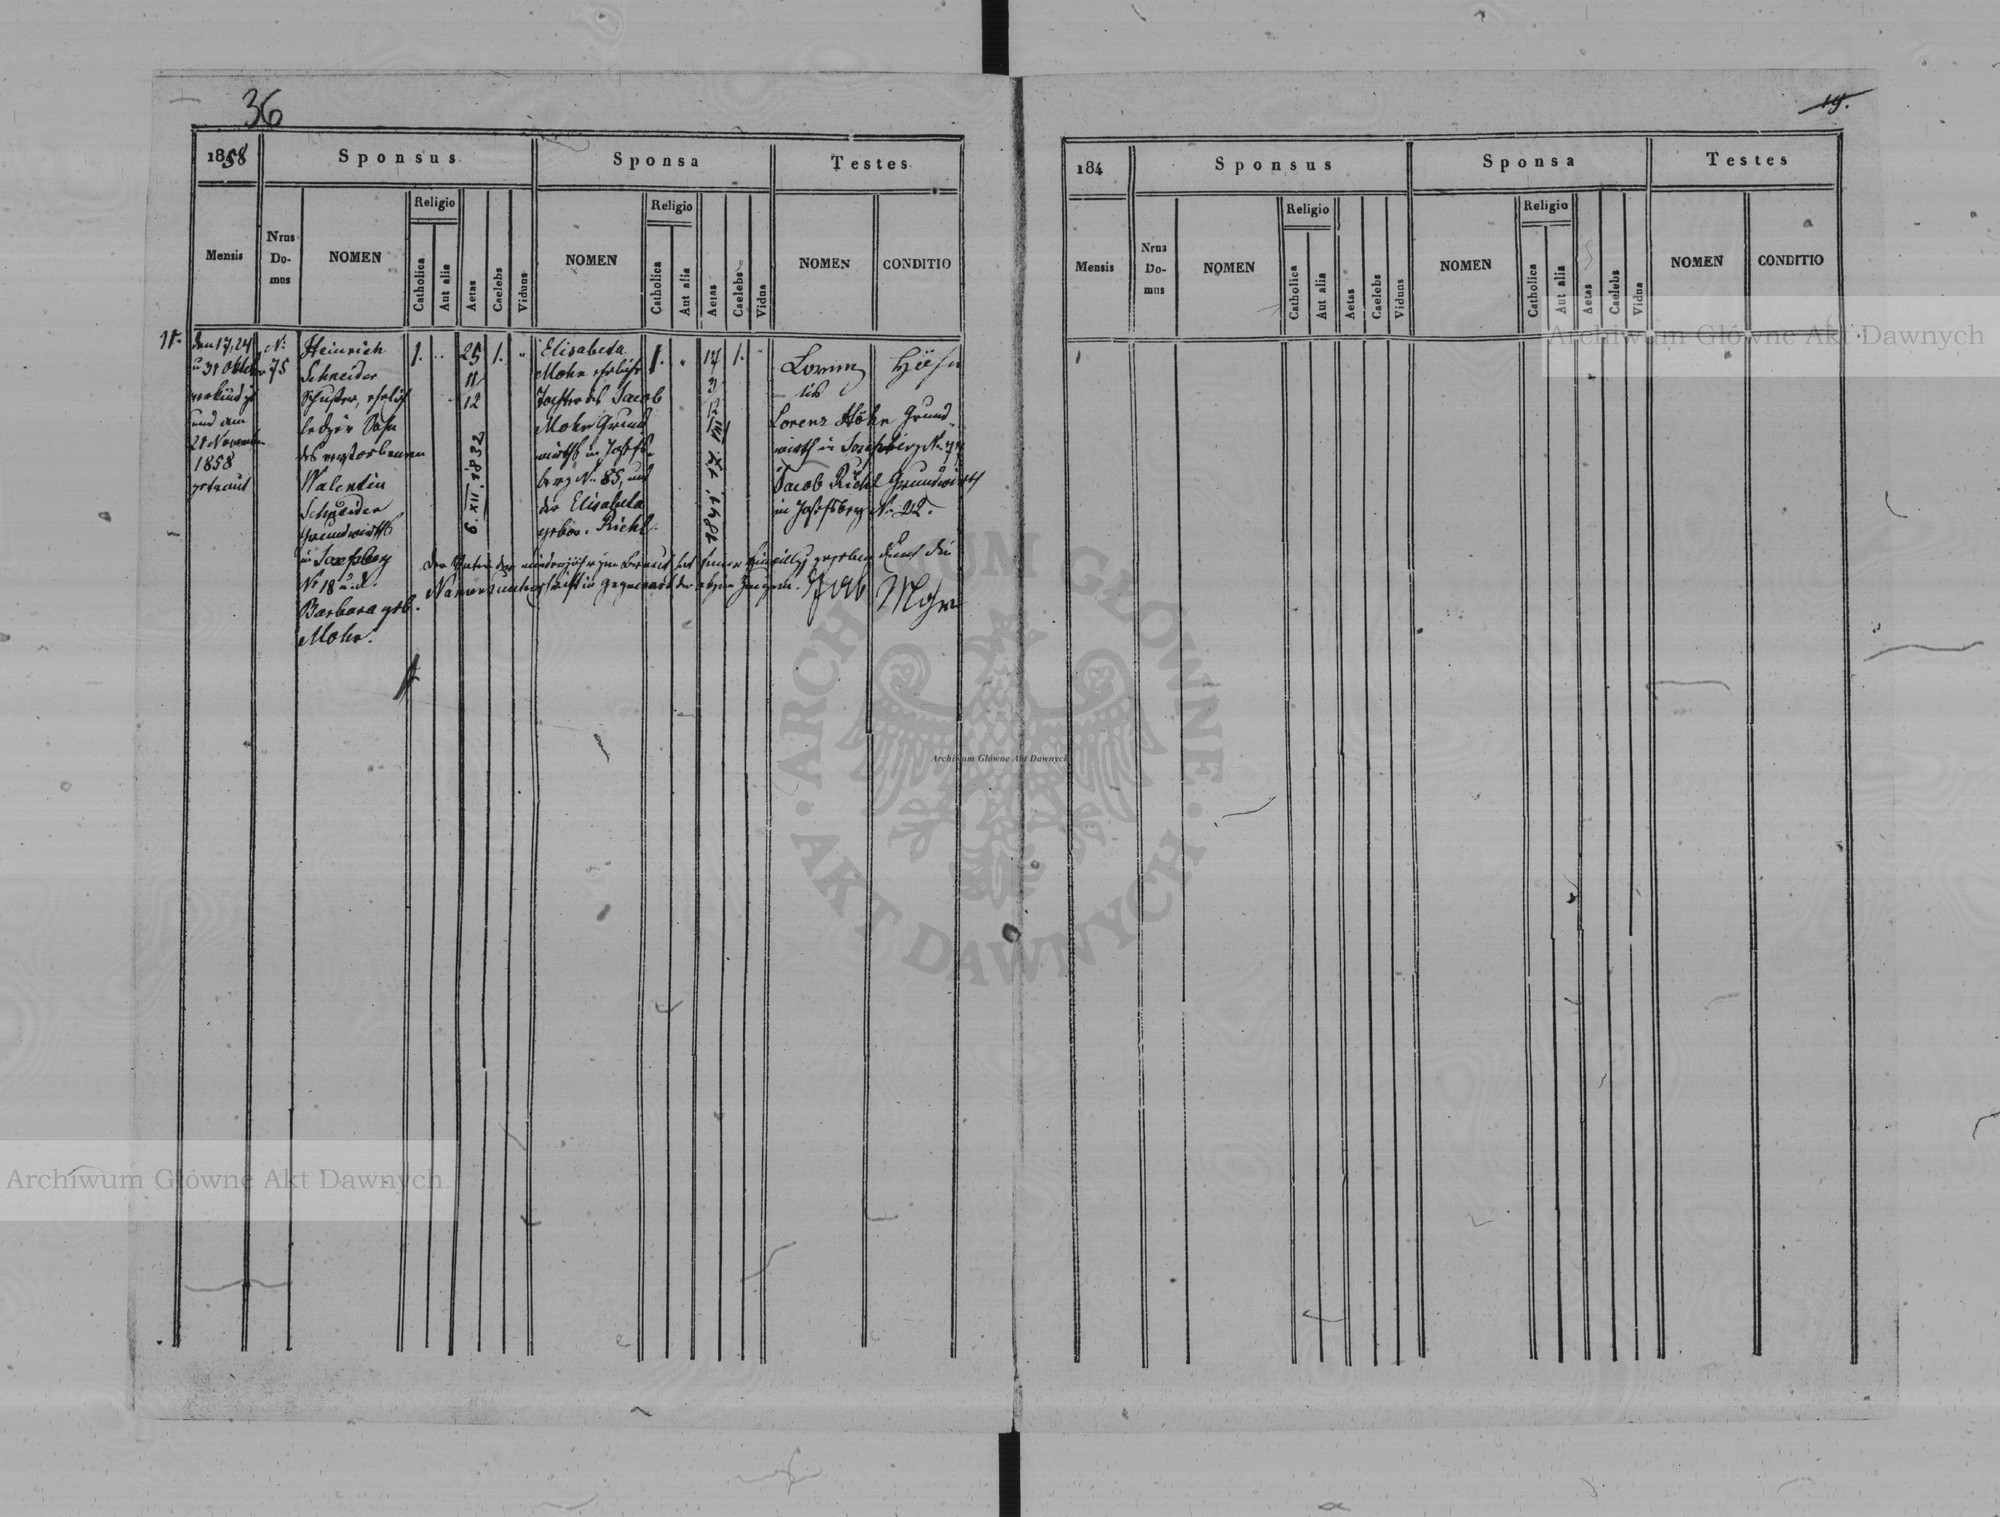 36
19.
1858
Sponsus
Sponsa
Testes
Mensis
Nrus Domus
NOMEN
Religio
Catholica
Aut alia
Aetas
Caelebs
Viduus
NOMEN
Religio
Catholica
Aut alia
Aetas
Caelebs
Vidua
NOMEN
CONDITIO
den 17, 24
u 31 Oktob
verkündigt
und am
21 Novemb
1858
getraut
N.
75
Heinrich
Schneider
Schuster, ehelich
lediger Sohn
des verstorbenen
Valentin
Schneider
Grundwirth
in Josefsberg
N. 18 u. d.
Barbara geb.
Mohr.
1.
25
11
12
6. XII. 1832
1.
Elisabeta
Mohr eheliche
Tochter des Jacob
Mohr Grund
wirth in Josefs-
berg N. 85, und
der Elisabeta
gebor. Riehl.
1.
17
3
12
1841. 17. VIII
1.
Lorenz Höhn
Lorenz Höhn Grund-
wirth in Josefsberg N.
Jacob Riehl Grundwirth
in Josefsberg N. 22.
Der Vater der minderjährigen Braut hat seine Einwilligung gegeben durch die
Namensunterschrift in Gegenwart der obigen Zeugen. Jakob Mohr
184
Sponsus
Sponsa
Testes
Mensis
Nrus Domus
NOMEN
Religio
Catholica
Aut alia
Aetas
Caelebs
Viduus
NOMEN
Religio
Catholica
Aut alia
Aetas
Caelebs
Vidua
NOMEN
CONDITIO
Archiwum Główne Akt Dawnych
Archiwum Główne Akt Dawnych
ARCHIWUM GŁÓWNE
AKT DAWNYCH
Archiwum Główne Akt Dawnych